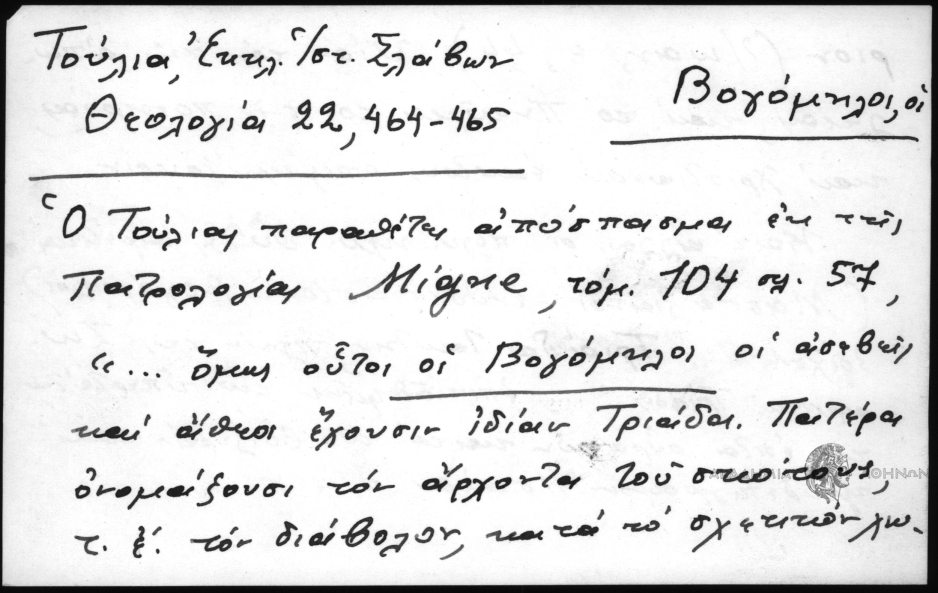 Τούλια, Ἐκκλ. Ἱστ. Σλάβων
Θεολογία 22, 464-465
Βογόμηλοι, οἱ
Ὁ Τούλιας παραθέτει ἀπόσπασμα ἐκ τῆς
Πατρολογίας Migne, τόμ. 104 σλ. 57,
"... ὅμως οὗτοι οἱ Βογόμηλοι οἱ ἀσεβεῖς
καὶ ἄθεοι ἔχουσιν ἰδίαν Τριάδα. Πατέρα
ὀνομάζουσι τόν ἄρχοντα τοῦ σκότους,
τ. ἔ. τόν διάβολον, κατά τό σχετικόν χω-
ΑΚΑΔΗΜΙΑ ΑΘΗΝΩΝ